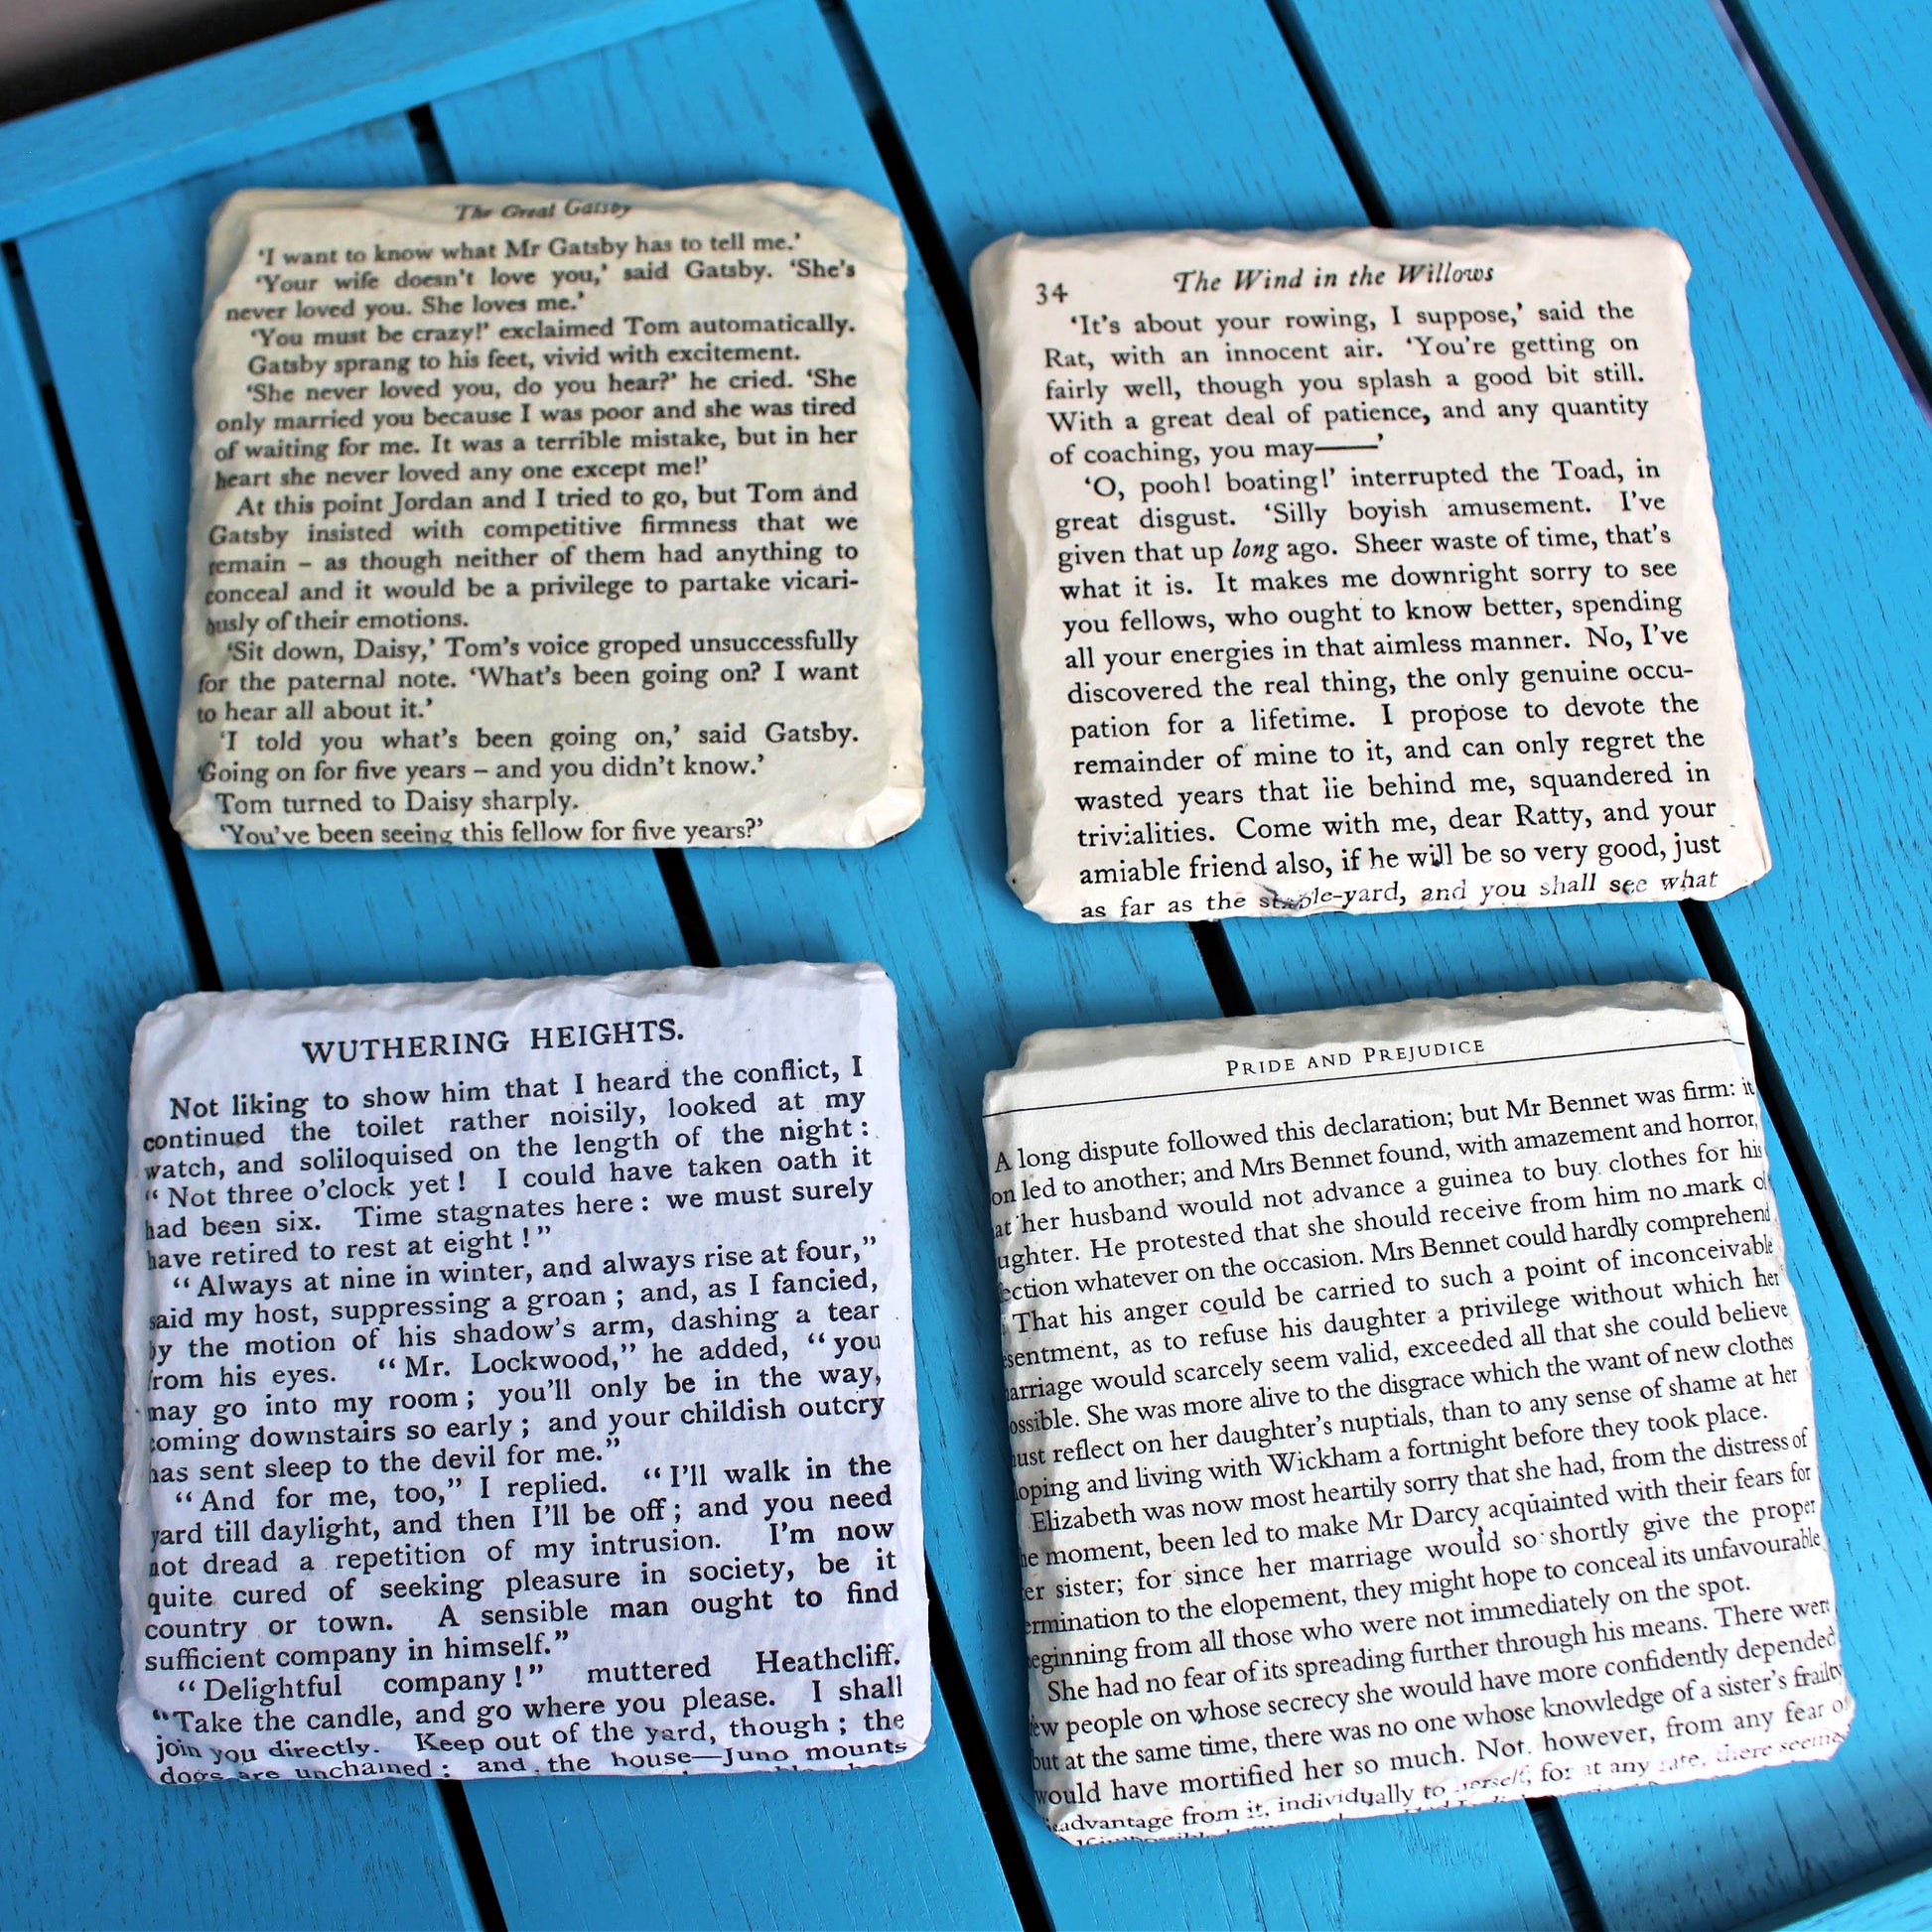 The Great Gatsby
'I want to know what Mr Gatsby has to tell me.'
'Your wife doesn't love you,' said Gatsby. 'She's
never loved you. She loves me.'
'You must be crazy!' exclaimed Tom automatically.
Gatsby sprang to his feet, vivid with excitement.
'She never loved you, do you hear?' he cried. 'She
only married you because I was poor and she was tired
of waiting for me. It was a terrible mistake, but in her
heart she never loved any one except me!'
At this point Jordan and I tried to go, but Tom and
Gatsby insisted with competitive firmness that we
remain – as though neither of them had anything to
conceal and it would be a privilege to partake vicari-
ously of their emotions.
'Sit down, Daisy,' Tom's voice groped unsuccessfully
for the paternal note. 'What's been going on? I want
to hear all about it.'
'I told you what's been going on,' said Gatsby.
'Going on for five years – and you didn't know.'
Tom turned to Daisy sharply.
'You've been seeing this fellow for five years?'
34 The Wind in the Willows
'It's about your rowing, I suppose,' said the
Rat, with an innocent air. 'You're getting on
fairly well, though you splash a good bit still.
With a great deal of patience, and any quantity
of coaching, you may——'
'O, pooh! boating!' interrupted the Toad, in
great disgust. 'Silly boyish amusement. I've
given that up long ago. Sheer waste of time, that's
what it is. It makes me downright sorry to see
you fellows, who ought to know better, spending
all your energies in that aimless manner. No, I've
discovered the real thing, the only genuine occu-
pation for a lifetime. I propose to devote the
remainder of mine to it, and can only regret the
wasted years that lie behind me, squandered in
trivialities. Come with me, dear Ratty, and your
amiable friend also, if he will be so very good, just
as far as the stable-yard, and you shall see what
WUTHERING HEIGHTS.
Not liking to show him that I heard the conflict, I
continued the toilet rather noisily, looked at my
watch, and soliloquised on the length of the night:
"Not three o'clock yet! I could have taken oath it
had been six. Time stagnates here: we must surely
have retired to rest at eight!"
"Always at nine in winter, and always rise at four,"
said my host, suppressing a groan; and, as I fancied,
by the motion of his shadow's arm, dashing a tear
from his eyes. "Mr. Lockwood," he added, "you
may go into my room; you'll only be in the way,
coming downstairs so early; and your childish outcry
has sent sleep to the devil for me."
"And for me, too," I replied. "I'll walk in the
yard till daylight, and then I'll be off; and you need
not dread a repetition of my intrusion. I'm now
quite cured of seeking pleasure in society, be it
country or town. A sensible man ought to find
sufficient company in himself."
"Delightful company!" muttered Heathcliff.
"Take the candle, and go where you please. I shall
join you directly. Keep out of the yard, though; the
dogs are unchained; and the house—Juno mounts
PRIDE AND PREJUDICE
A long dispute followed this declaration; but Mr Bennet was firm: it
on led to another; and Mrs Bennet found, with amazement and horror,
at her husband would not advance a guinea to buy clothes for his
ughter. He protested that she should receive from him no mark of
ection whatever on the occasion. Mrs Bennet could hardly comprehend
That his anger could be carried to such a point of inconceivable
sentment, as to refuse his daughter a privilege without which her
arriage would scarcely seem valid, exceeded all that she could believe
ossible. She was more alive to the disgrace which the want of new clothes
ust reflect on her daughter's nuptials, than to any sense of shame at her
loping and living with Wickham a fortnight before they took place.
Elizabeth was now most heartily sorry that she had, from the distress of
he moment, been led to make Mr Darcy acquainted with their fears for
er sister; for since her marriage would so shortly give the proper
ermination to the elopement, they might hope to conceal its unfavourable
eginning from all those who were not immediately on the spot.
She had no fear of its spreading further through his means. There were
ew people on whose secrecy she would have more confidently depended
but at the same time, there was no one whose knowledge of a sister's frailty
would have mortified her so much. Not, however, from any fear of
isadvantage from it, individually to herself; for at any rate, there seeme